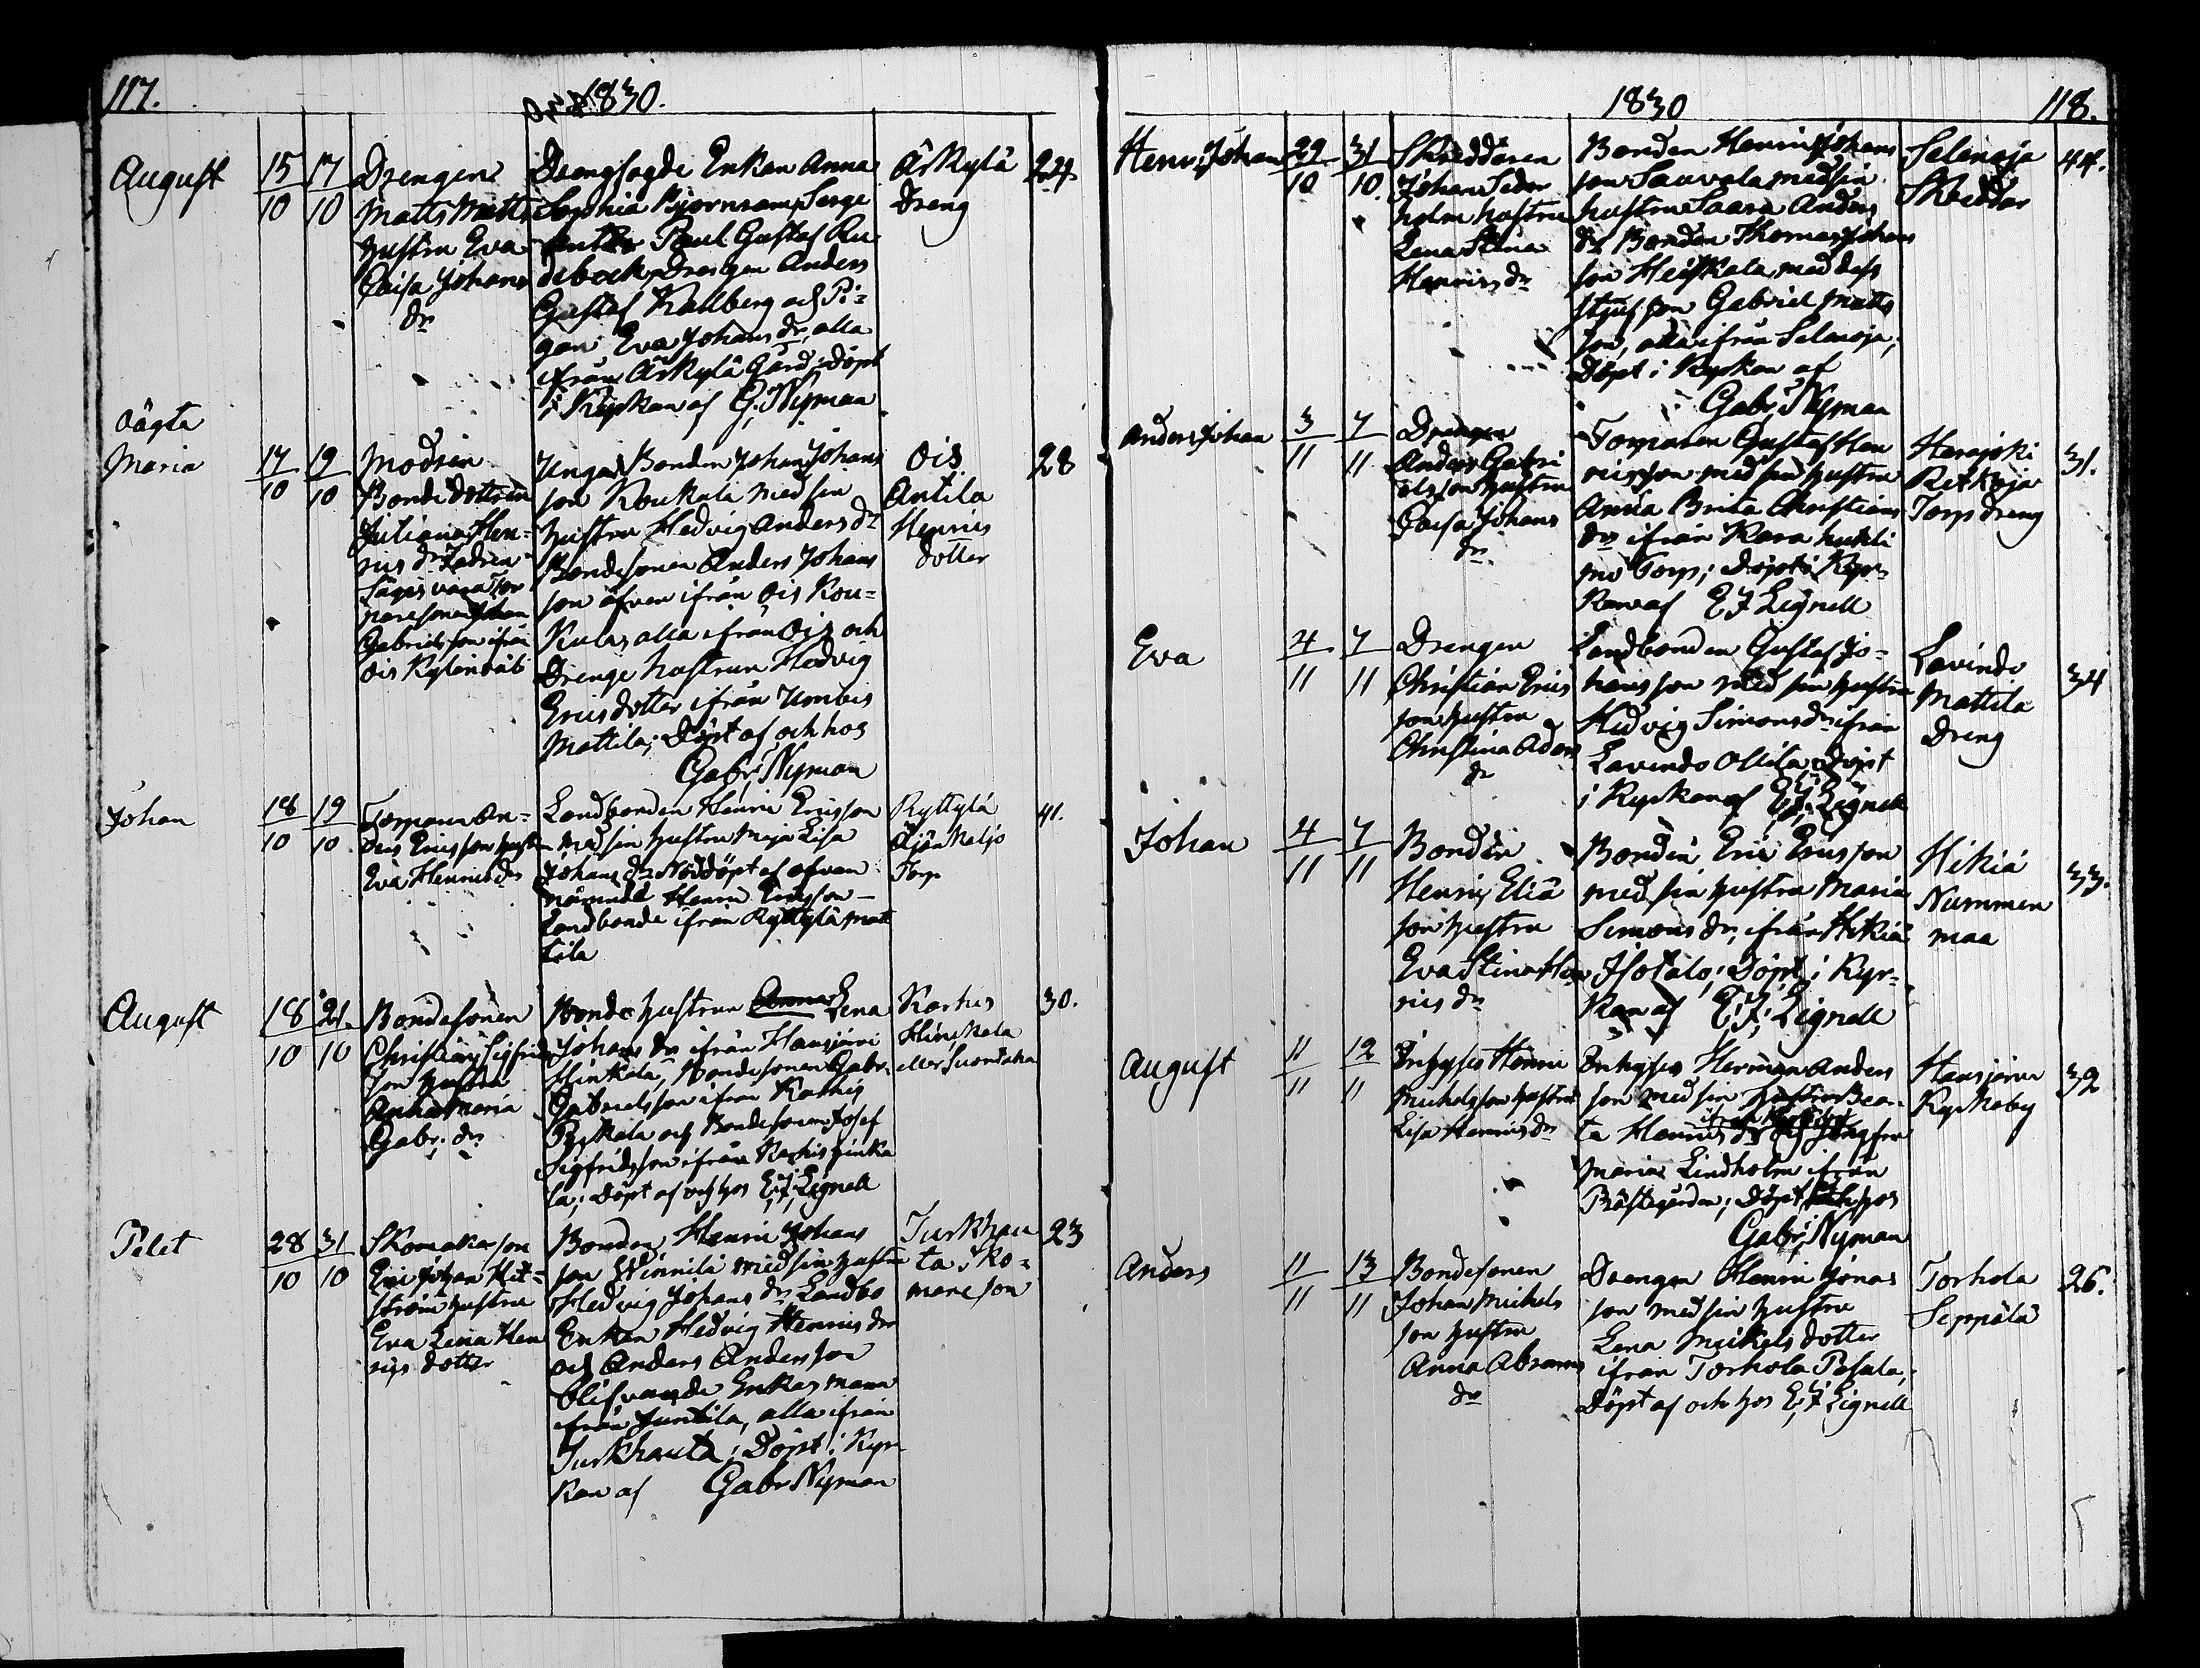 117.
1830.
August
15 17
10 10
Drengen
Matts Matts
hustru Eva
Caisa Johans
dr
Drengfogde Enkan Anna
Sophia Björnram, Serge
Paul Gustaf Ru
debeck, Drengen Anders
Gustaf Kallberg och Pi-
gan Eva Johans dr, alla
ifrån Ärkylä Gård; döpt
i Kyrkan af G. Nyman
Ärkylä
Dreng
24.
oägta
Maria
17 19
10 10
Modren
Bonde dottren
Juliana Hen-
rics dr Fadren
säges vara Tor
pare sonen Johan
Gabriels son ifrån
Ois
Unga Bonden Johan Johans
son Koukala med sin
hustru Hedvig Anders dr
Bondesonen Anders Johans
son äfven ifrån Ois Kou-
kula, alla ifrån Ois och
Drenge hustrun Hedvig
Ericsdotter ifrån Umbis
Mattila; Döpt af och hos
Gabr. Nyman
Ois
Antila
Henrics
dotter
28
Johan
18 19
10 10
Torparen An-
ders Ericsson hustru
Eva Henricsdr
Landbonden Henric Ericsson
med sin hustru Maja Lisa
Johans dr Nöddöpt af ofvan
nämnde Henric Ericsson
Landbonde ifrån Ryttylä Mat
tila
Ryttylä
Torp
41.
August
18 21.
10 10
Bondesonen
Christian Sigfrids
son hustru
Anna Maria
Gabr. dr
Bonde hustrun Lena
Johans dr ifrån Hausjärvi
Hinkala, Bondesonen Gabr.
Gabrielsson ifrån Karhis
Pyskala och Bondesonen Josef
Sigfridsson ifrån Karhis Hinka
la; Döpt af och hos E; J; Lignell
Karhis
Hinkala
eller Suontaka
30.
28 31
10 10
Skomakarson
Eric Johan Hit-
ström hustru
Eva Lena Hen
rics dotter
Bonden Henric Johans
son Winnilä med sin hustru
Hedvig Johans dr, Landbo
Enkan Hedvig Henrics dr
och Anders Andersson
blifvande Enkas mann
ifrån Juntila, alla ifrån
Turkhauta; Döpt i Kyr-
kan af Gabr Nyman
Turkhau
ta, Sko-
mare son
23
1830
118.
Henric Johan
29 31
10 10.
Skräddaren
Johan Seder
holm hustru
Lena Stina
Henrics dr
Bonden Henric Johans
son Sauvala med sin
hustru Saara Anders
dr Bonden Thomas Johans
son Heiskala, med dess
stjufson Gabriel Matts
son, alla ifrån Selänoja;
Döpt i Kyrkan af
Gabr; Nyman
Selenoja
Skreddar
44.
Anders Johan
3 7
11 11
Drengen
Anders Gabri
elsson hustru
Caisa Johans
dr.
Torparen Gustaf Hen
ricsson med sin hustru
Anna Brita Christians
dr, ifrån Kara huhti
mo Torp; döpt i Kyr-
kan af E J Lignell
Herajoki
Retkoja
Torp dreng
31.
Eva
4 7
11 11
Drengen
Christian Erics
son hustru
Christina Aders
dr
Landbonden Gustaf Jo-
hansson med sin hustru
Hedvig Simons dr ifrån
Lavinto Ollila, döpt
i Kyrkan af E; J; Lignell
Lavindo
Mattila
Dreng
34
Johan
4 7
11 11
Bonden
Henric Eliä
son hustru
Eva Stina Hen
rics dr
Bonden Eric Ericsson
med sin hustru Maria
Simons dr, ifrån Hikiä
Isotalo; Döpt i Kyr-
kan af E; J; Lignell
Hikiä
Nummen
maa
33.
August
11 12
11 11
Inhyses Henric
Michelsson hustru
Lisa Henrics dr
Inhyses Herman Anders
son med sin hustru Bea-
ta Henrics dr och Jungfru
Maria Lindholm ifrån
Prästegården; Döpt hos
Gabr; Nyman
Hausjärvi
Kyrkoby
32
Anders
11 13
11 11
Bondesonen
Johan Michels
son hustru
Anna Abrams
dr
Drengen Henric Jonas
son med sin hustru
Lena Michels dotter
ifrån Torhola Pasala;
Döpt af och hos E; J Lignell
Torhola
Seppälä
26.